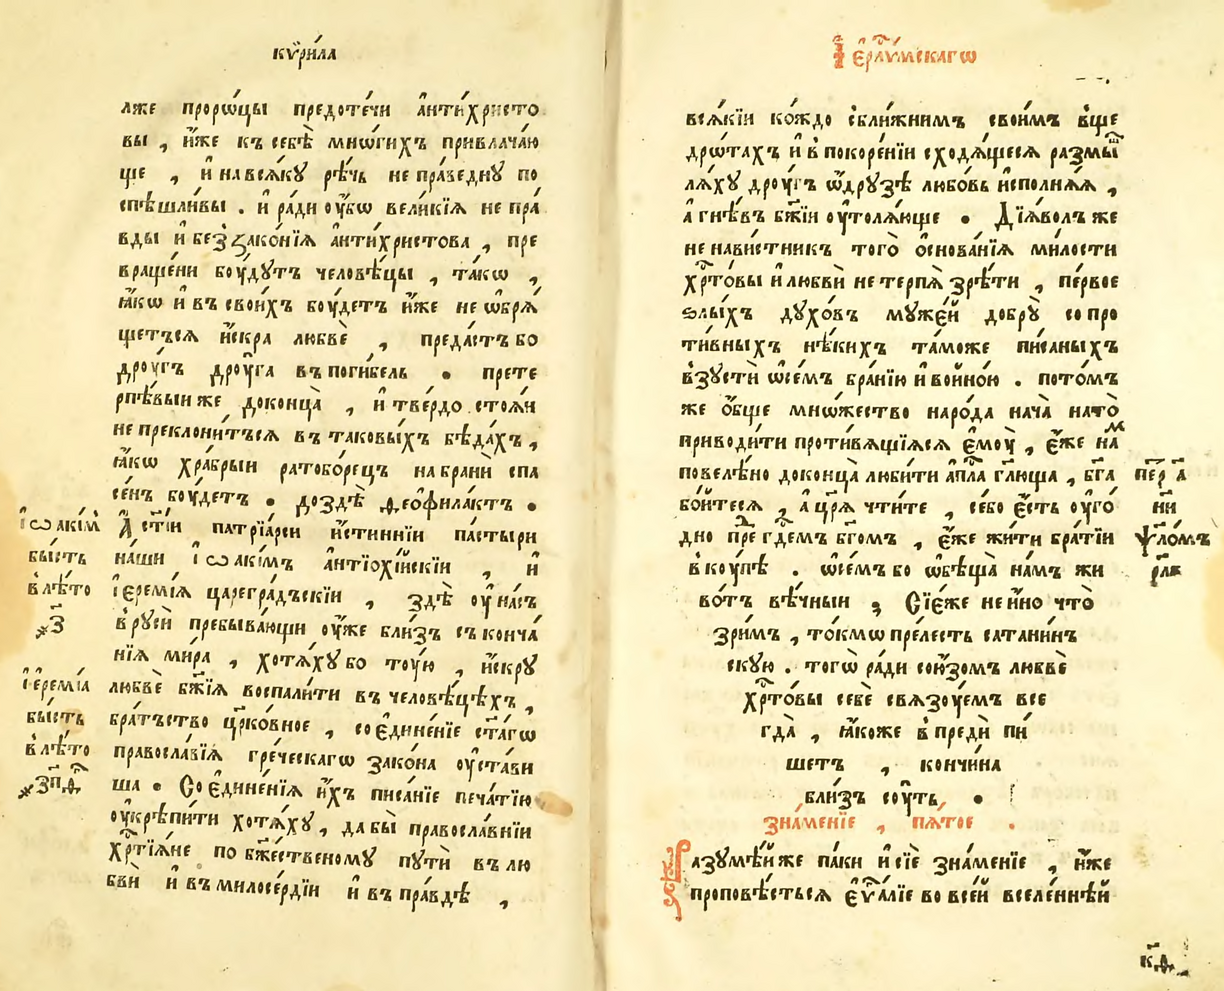 кѷри́ла
лже проро́цы предоте́чи а҆нти́христо
вы , и҆́же къ себѣ̀ мно́гихъ привлача́ю
ще , и҆ навсѧ́ку рѣ́чь не пра́ведну по
спѣ́шливы . и҆ ра́ди оу҆́бѡ вели́кїѧ непра́
вды и҆ без̾зако́нїѧ а҆нти́христова , пре
враще́ни бо́удутъ человѣ́цы , та́кѡ ,
ꙗ҆́кѡ и҆ въ свои́хъ бо́удетъ и҆́же не ѡ҆брѧ́
щетъсѧ и҆́скра любвѐ , преда́стъ бо
дро́угъ дро́уга въ поги́бель . прете
рпѣ́выи же доконца̀ , и҆ тве́рдо стоѧ́и
не преклони́тъсѧ въ таковы́хъ бѣда́хъ ,
ꙗ҆́кѡ хра́брыи ратобо́рецъ на бра́ни спа
се́нъ бо́удетъ . до здѣ̀ ѳ̾еофила́ктъ .
і҆ѡаки́м
А҆ ст҃і́и патрїа́рси и҆́стиннїи па́стыри
бы́сть
на́ши і҆ѡаки́мъ а҆нтїохі́искїи , и҆
в̾лѣ́то
і҆еремі́ѧ царегра́дъскїи , здѣ̀ оу҆ на́съ
҂з҃
в̾руси́ пребыва́ющи оу҆́же бли́з̾ съконча́
нїѧ ми́ра , хотѧ́ху бо то́ую , и҆́скру
і҆еремі́а
любвѐ бж҃їѧ воспали́ти въ человѣ́цѣхъ ,
бы́сть
бра́тъство цр҃ко́вное , сое҆дине́нїе ст҃а́гѡ
в̾лѣ́то
правосла́вїѧ гре́ческагѡ зако́на оу҆ста́ви
҂зп҃д
ша . Сое҆дине́нїѧ и҆́хъ писа́нїе печа́тїю
оу҆крѣпи́ти хотѧ́ху , да бы̀ правосла́внїи
хр҃тїѧ́не по бж҃е́ственому путѝ въ лю
бви̂ и҆ въ милосе́рдїи и҆ въ пра́вдѣ ,
І҆ерл҃и́мскагѡ
всѧ́кїи ко́ждо с̾бли́жнимъ свои́мъ в̾ще
дро́тахъ и҆ в̾покоре́нїи сходѧ́щесѧ размы
лѧ́ху дро́угъ ѡ҆дру́зѣ любо́вь и҆сполнѧ́ѧ ,
а҆ гнѣ́въ бж҃їи оу҆толѧ́юще . Дїѧ́волъ же
не нави́стникъ того̀ ѻ҆снова́нїѧ ми́лости
хр҃то́вы и҆ любви̂ не терпѧ̀ зрѣ́ти , пе́рвое
ѕлы́хъ духо́въ муже́й добру̀ сопро
ти́вныхъ нѣ́кихъ та́може пи́саныхъ
в̾зусти̂ ѡ҆се́мъ бра́нїю и҆ войно́ю . пото́мъ
же ѻ҆́бще мно́жество наро́да нача̀ на то̀
приводи́ти проти́вѧщїѧсѧ є҆моу̀ , є҆́же нам
повелѣ́но доконца̀ люби́ти а҆пл҃а гл҃юща , бг҃а
пе́р҃ а҃
бо́йтесѧ , а҆ цр҃ѧ̀ чти́те , се́бо є҆́сть оу҆го́
ни
дно пред̾ гд҃емъ бг҃омъ , є҆́же жи́ти бра́тїи
ѱало́мъ
в̾коу́пѣ . ѡ҆се́мъ бо ѡ҆бѣща̀ на́мъ жи
рл҃в
во́тъ вѣ́чныи ; Сїе́же не и҆́но что̀
зри́мъ , то́кмѡ пре́лесть сатани́нъ
скую . тогѡ̀ ра́ди сою́зомъ любвѐ
хр҃то́вы себѐ свѧзо́уемъ все
гда̀ , ꙗ҆́коже в̾преди̂ пи́
шетъ , кончи́на
бли́з̾ со́уть .
зна́менїе , пѧ́тое .
Разумѣ́й же па́ки и҆ сїѐ зна́менїе , и҆́же
проповѣ́стьсѧ є҆ѵ҃а́лїе во все́й вселе́ннѣй
к҃д